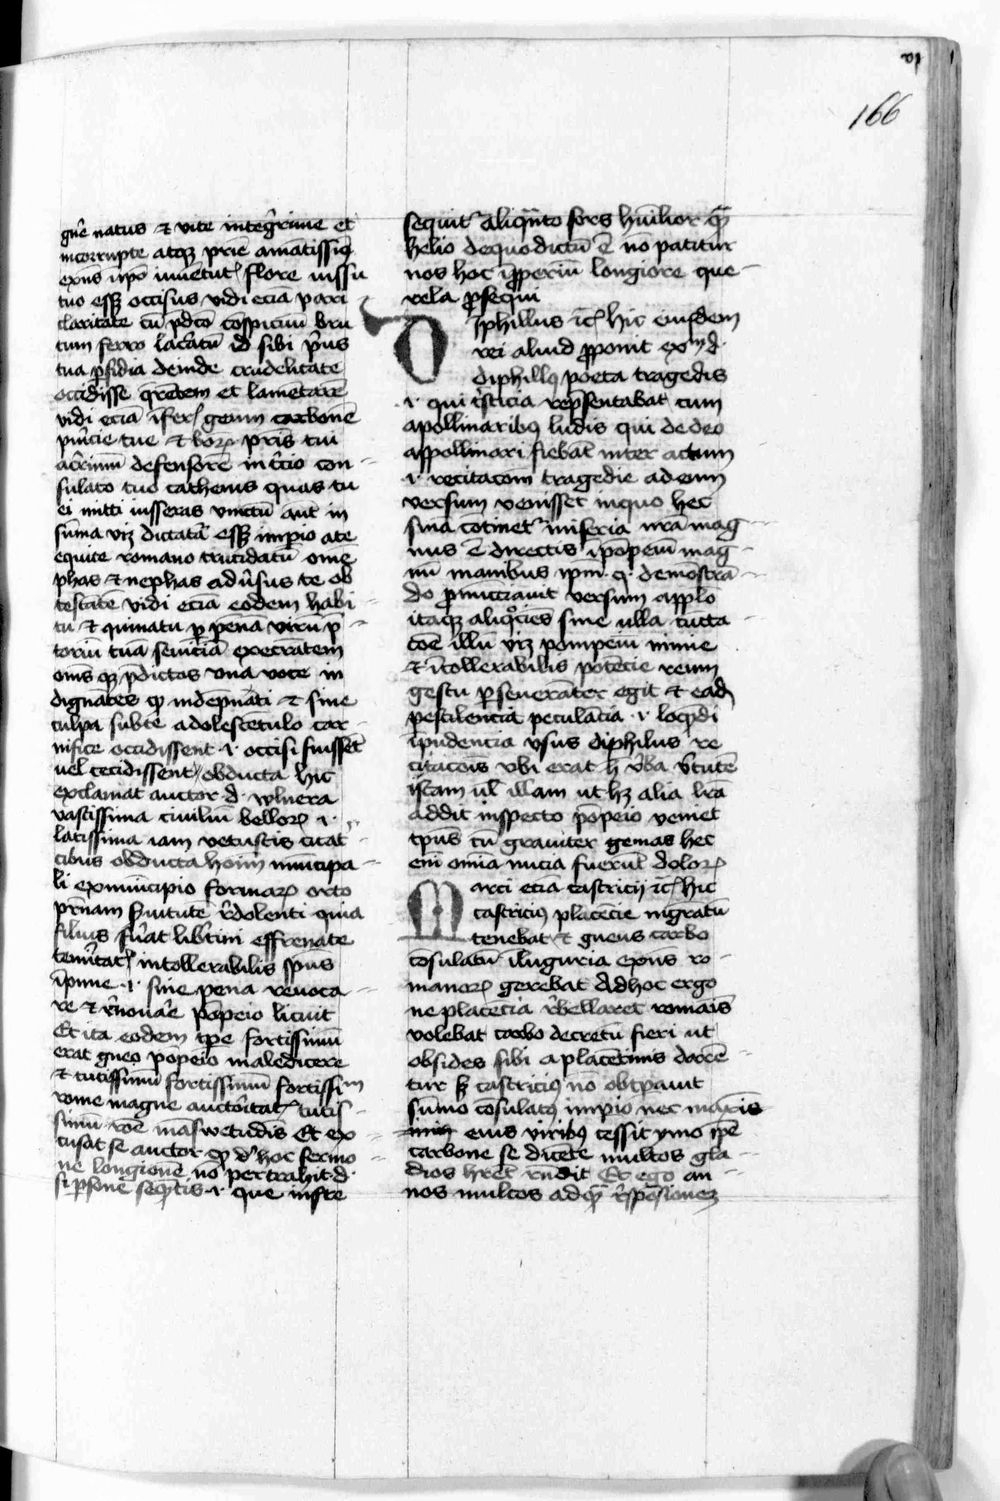 vi
166
gñe natus & vite integrime et
incorrupte atqz prie amatissiq
exñs ipo iuuetut flore iussu
tuo esse occisus vidi ecia pari
claritate cu pdco cospicuu bru
tum ferro lacatu id sibi pus
tua pfidia deinde crudelitate
occidisse qretem et lametare
vidi ecia ifer genu carbone
puicie tue & bor pris tui
acrimu defensore in tcio con
sulato tuo cathenis quas tu
ei mitti iusseras vinctu aut in
suma viz dictata esse impio ate
equite romano trucidatu ome
phas & nephas aduersus te ob
testate vidi ecia eodem habi
tu & quinatu p pena viru p
toriu tua seuicia execratem
omis qz pdictos vna voce in
dignates qp indepnati & sine
culpa subte adolescetulo car
nifice occidissent .i. occisi fuisset
uel cecidissent obducta hic
exclamat auctor .d. wlnera
vastissima ciuiliu bellor .i.
latissima iam vetustis cicat
cibus obducta hoim municipa
li ex municipio formiar orto
prnam seruitute rdolenti quia
filius fuat libtini effrenate
temitat intollerabilis spus
ipune .i. sine pena reuoca
re & rnouae popeio licuit
Et ita eodem tpe fortissimu
erat gneo popeio maledicere
& tutissimu fortissimu fortissim
rome magne auctoitat tutis
simu roe maswetudis Et ex
cusat se auctor qp d hoc sermo
ne longione no pertrahit .d.
si psone sequtis .i. que infre
sequit aliqnto sors humlior qm
helio de quo dictu e no patitur
nos hoc ipperiu longiore que
rela psequi
Diphillus ic hic eiusdem
rei aliud pponit exm d.
diphillq poeta tragedis
.i. qui tisticia repsentabat cum
apollinaribus ludis qui de deo
appollinari fiebat inter actum
.i. recitacom tragedie ad eum
versum venisset in quo hec
snia cotinet miseria nra mag
nus e directis i popeiu mag
nu manibus ipm q. demostra
do pnuctiauit versum applo
itaqz aliqcies sine ulla cucta
coe illu viz pompeiu nimie
& itollerabilis potecie reum
gestu pseuerater egit & ead
pestilencia petulacia .i. loqndi
ipudencia vsus diphilus re
citacois vbi erat h vba vtute
istam ul illam ut hz alia lra
addit inspecto popeio veniet
tpus cu grauiter gemas hec
eni omia nucia fuerut dolor
Marci ecia castricij ic hic
castriciq placecie migratu
tenebat & gneus carbo
cosulatu i luguria exns ro
manor gerebat Ad hoc ergo
ne placetia rbellaret romais
volebat carbo decretu fieri ut
obsides sibi a placetinis daren
tur sz castriciq no obtpauit
sumo cosulatq impio nec maxis
eius viribq cessit ymo ipe
carbone se dicete multos gla
dios hret rndit Et ego an
nos multos ad qm rsposionez